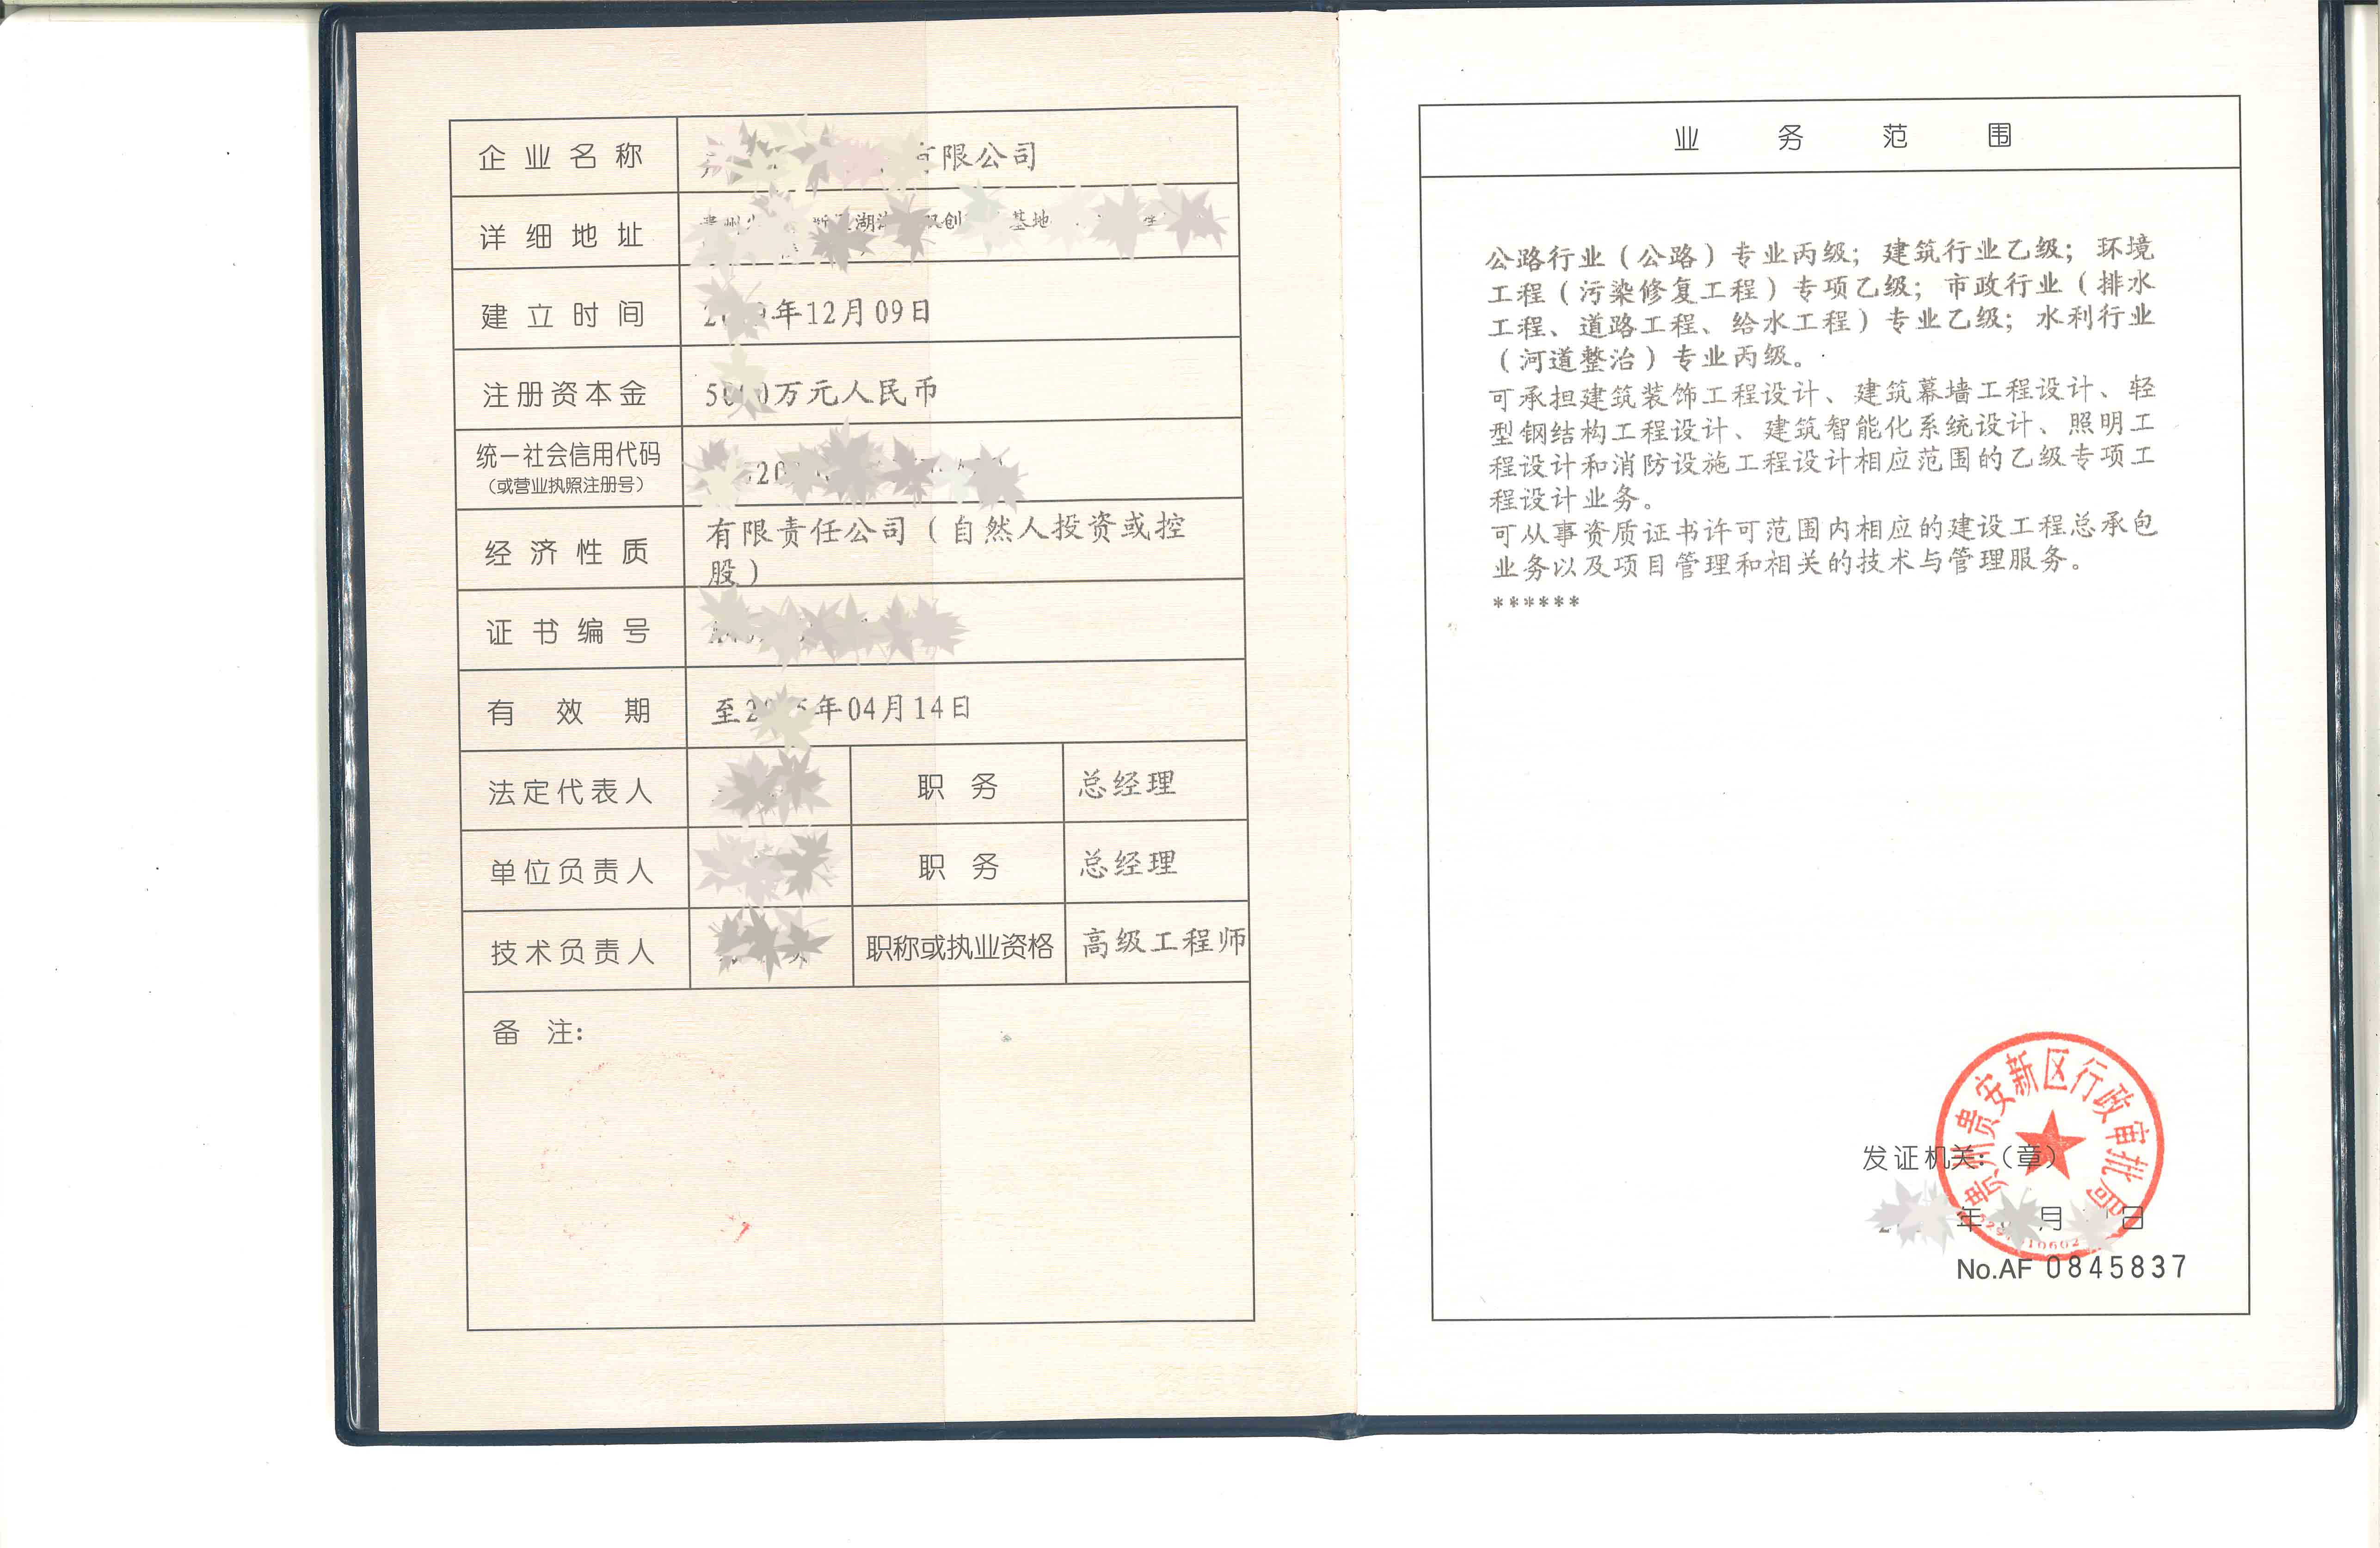 企业名称 有限公司
详细地址 湖 创 基地
建立时间 年12月09日
注册资本金 万元人民币
统一社会信用代码
（或营业执照注册号）
经济性质 有限责任公司（自然人投资或控
股）
证书编号
有效期 至 年04月14日
法定代表人 职务 总经理
单位负责人 职务 总经理
技术负责人 职称或执业资格 高级工程师
备注：
业务范围
公路行业（公路）专业丙级；建筑行业乙级；环境
工程（污染修复工程）专项乙级；市政行业（排水
工程、道路工程、给水工程）专业乙级；水利行业
（河道整治）专业丙级。
可承担建筑装饰工程设计、建筑幕墙工程设计、轻
型钢结构工程设计、建筑智能化系统设计、照明工
程设计和消防设施工程设计相应范围的乙级专项工
程设计业务。
可从事资质证书许可范围内相应的建设工程总承包
业务以及项目管理和相关的技术与管理服务。
******
贵州贵安新区行政审批局
发证机关：（章）
年 月 日
No.AF 0845837